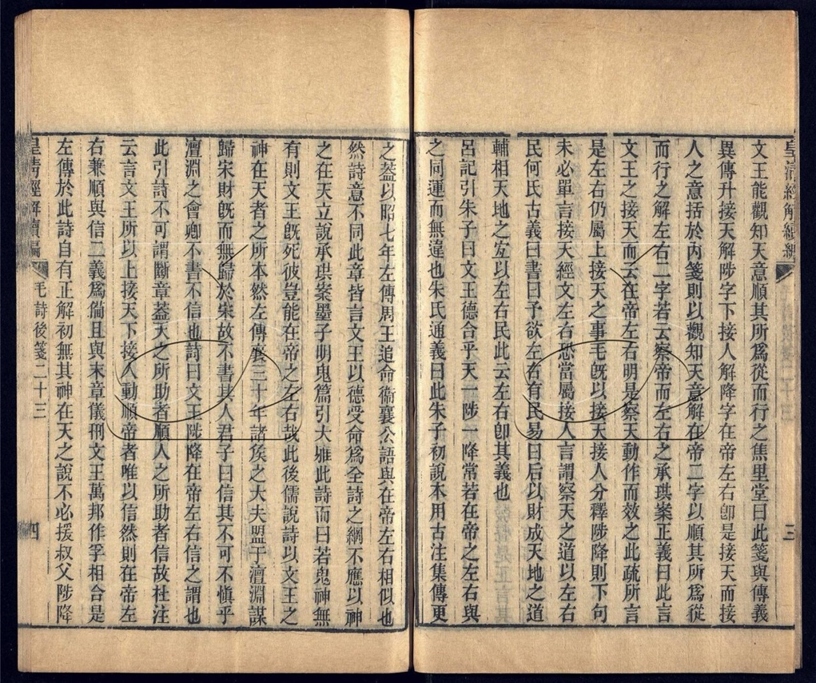 皇清經解續編
三
文王能觀知天意順其所爲從而行之焦里堂曰此箋與傳義
異傳升接天解陟字下接人解降字在帝左右卽是接天而接
人之意括於內箋則以觀知天意解在帝二字以順其所爲從
而行之解左右二字若云察帝而左右之承珙案正義曰此言
文王之接天而云在帝左右明是察天動作而效之此疏所言
是左右仍屬上接天之事毛旣以接天接人分釋陟降則下句
未必單言接天經文左右恐當屬接人言謂察天之道以左右
民何氏古義曰書曰予欲左右有民易曰后以財成天地之道
輔相天地之宐以左右民此云左右卽其義也
呂記引朱子曰文王德合乎天一陟一降常若在帝之左右與
之同運而無違也朱氏通義曰此朱子初說本用古注集傳更
之蓋以昭七年左傳周王追命衞襄公語與在帝左右相似也
然詩意不同此章皆言文王以德受命爲全詩之綱不應以神
之在天立說承珙案墨子明鬼篇引大雅此詩而曰若鬼神無
有則文王旣死彼豈能在帝之左右哉此後儒說詩以文王之
神在天者之所本然左傳襄三十年諸矦之大夫盟于澶淵謀
歸宋財旣而無歸於宋故不書其人君子曰信其不可不愼乎
澶淵之會卿不書不信也詩曰文王陟降在帝左右信之謂也
此引詩不可謂斷章蓋天之所助者順人之所助者信故杜注
云言文王所以上接天下接人動順帝者唯以信然則在帝左
右兼順與信二義爲僃且與末章儀刑文王萬邦作孚相合是
左傳於此詩自有正解初無其神在天之說不必援叔父陟降
皇清經解續編
毛詩後箋二十三
四